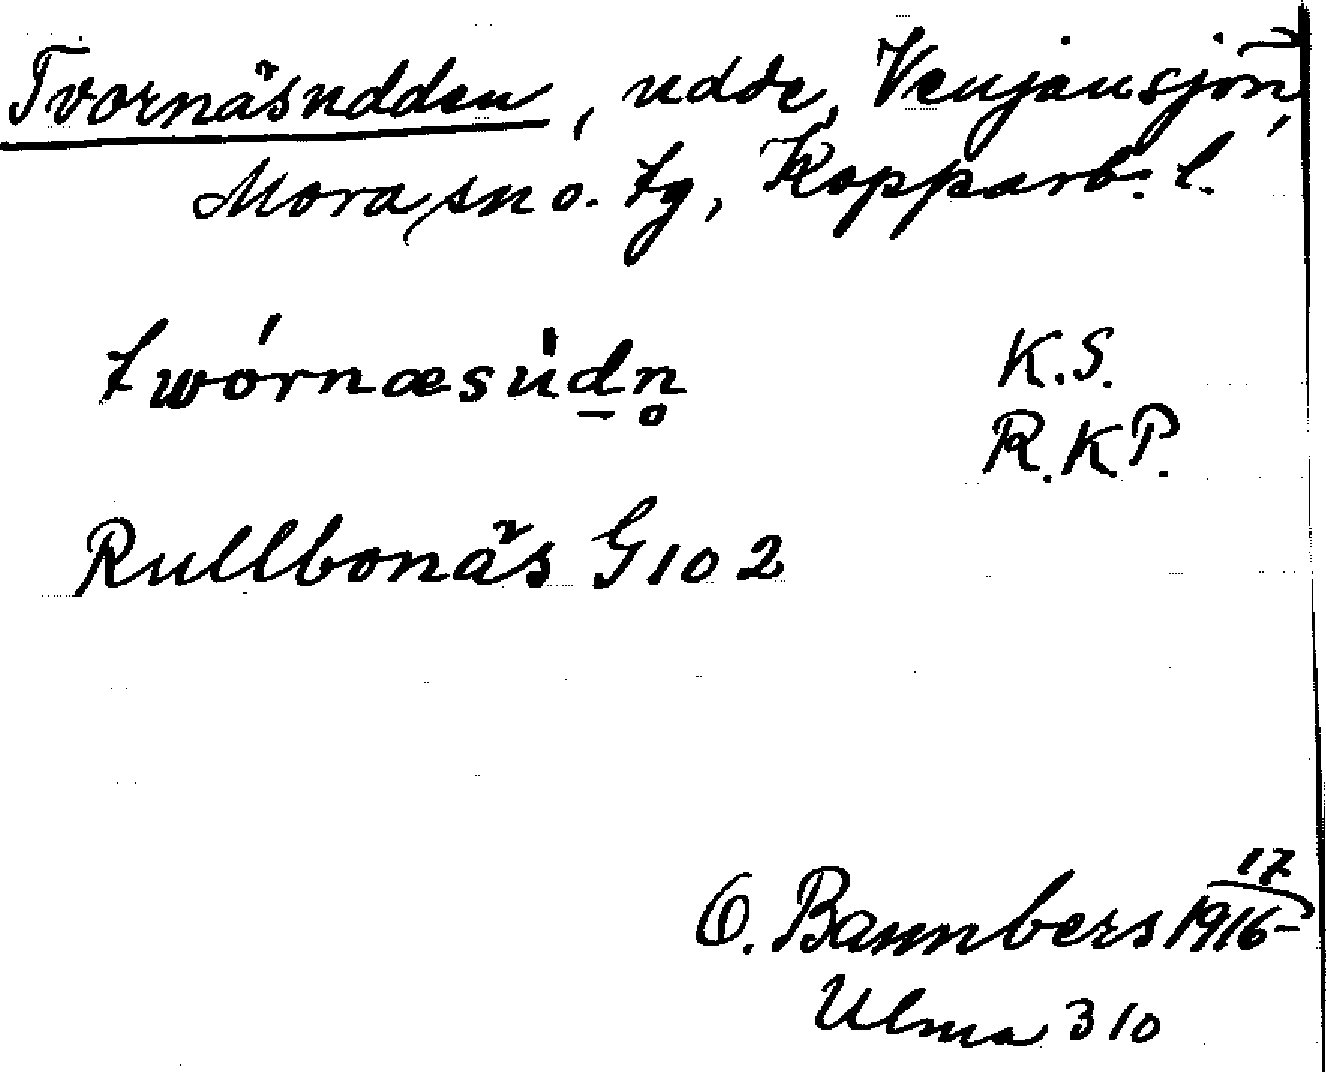 Tvornäsudden, udde, Venjansjön,
Mora sn o. tg, Kopparb. l.
twórnæsùd̠n̥ K.S.
R.K.P.
Rullbonäs G 102
O. Bannbers 1916-17
Ulma 310